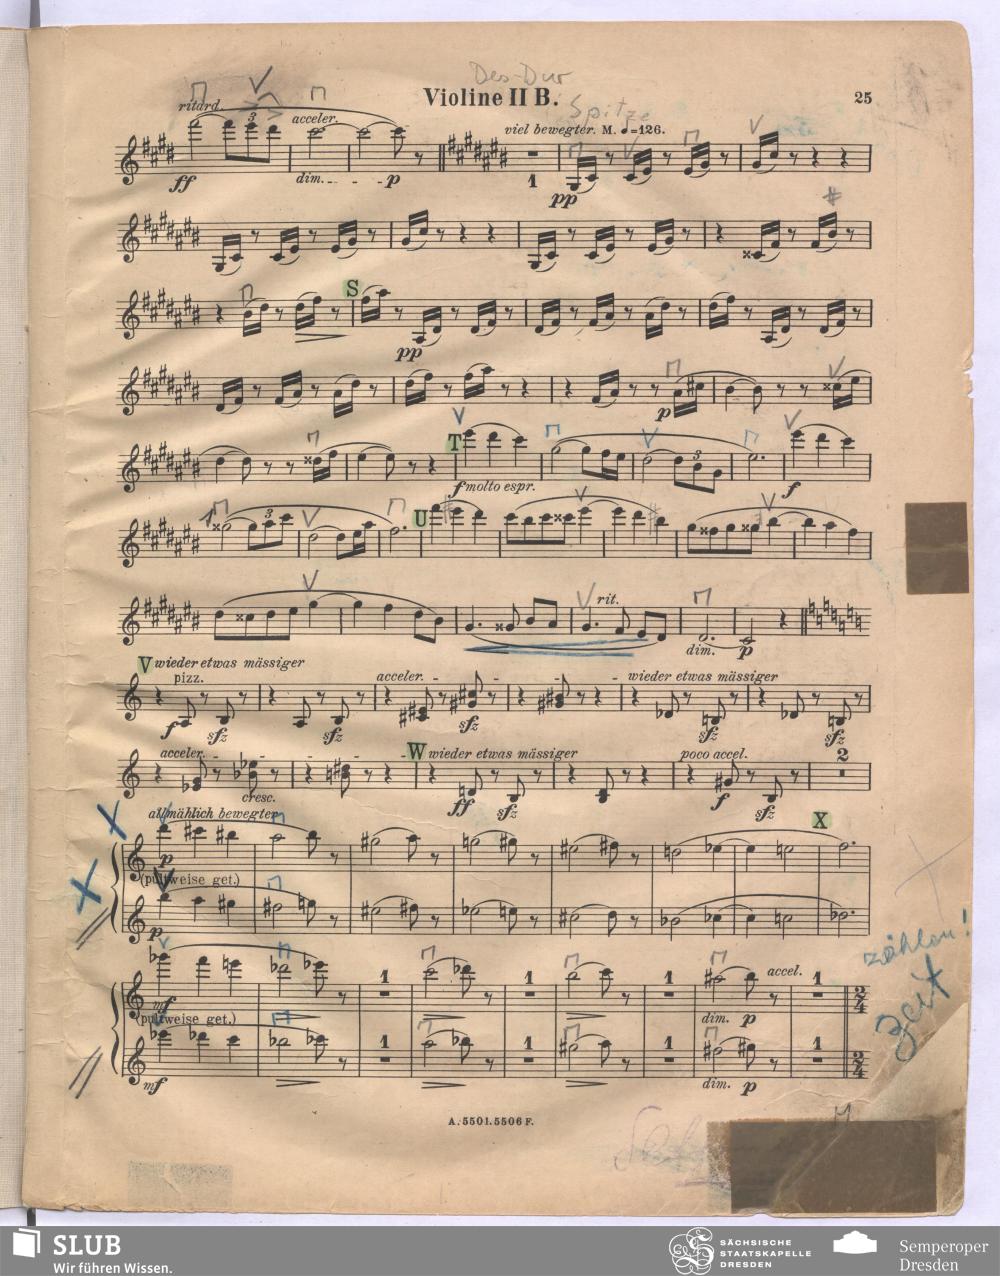 Des-Dur
Violine II B.
25
Spitze
ritard.
3
acceler.
viel bewegter. M. ♩=126.
ff
dim.
p
1
pp
S
pp
p
T
3
f molto espr.
f
3
U
rit.
dim.
p
V wieder etwas mässiger
pizz.
acceler.
wieder etwas mässiger
f
sfz
sfz
sfz
sfz
sfz
acceler.
W wieder etwas mässiger
poco accel.
2
cresc.
ff
sfz
f
sfz
allmählich bewegter
X
p
(pultweise get.)
p
zählen!
mf
1
1
accel.
1
2/4
(pultweise get.)
dim. p
Zeit
1
1
1
2/4
mf
dim. p
A. 5501. 5506 F.
SLUB
Wir führen Wissen.
SÄCHSISCHE
STAATSKAPELLE
DRESDEN
Semperoper
Dresden